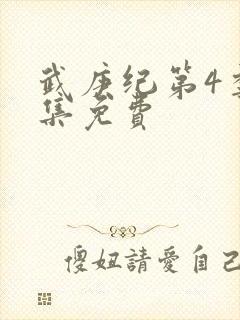 武庚纪第4季
集免费
傻妞請愛自己